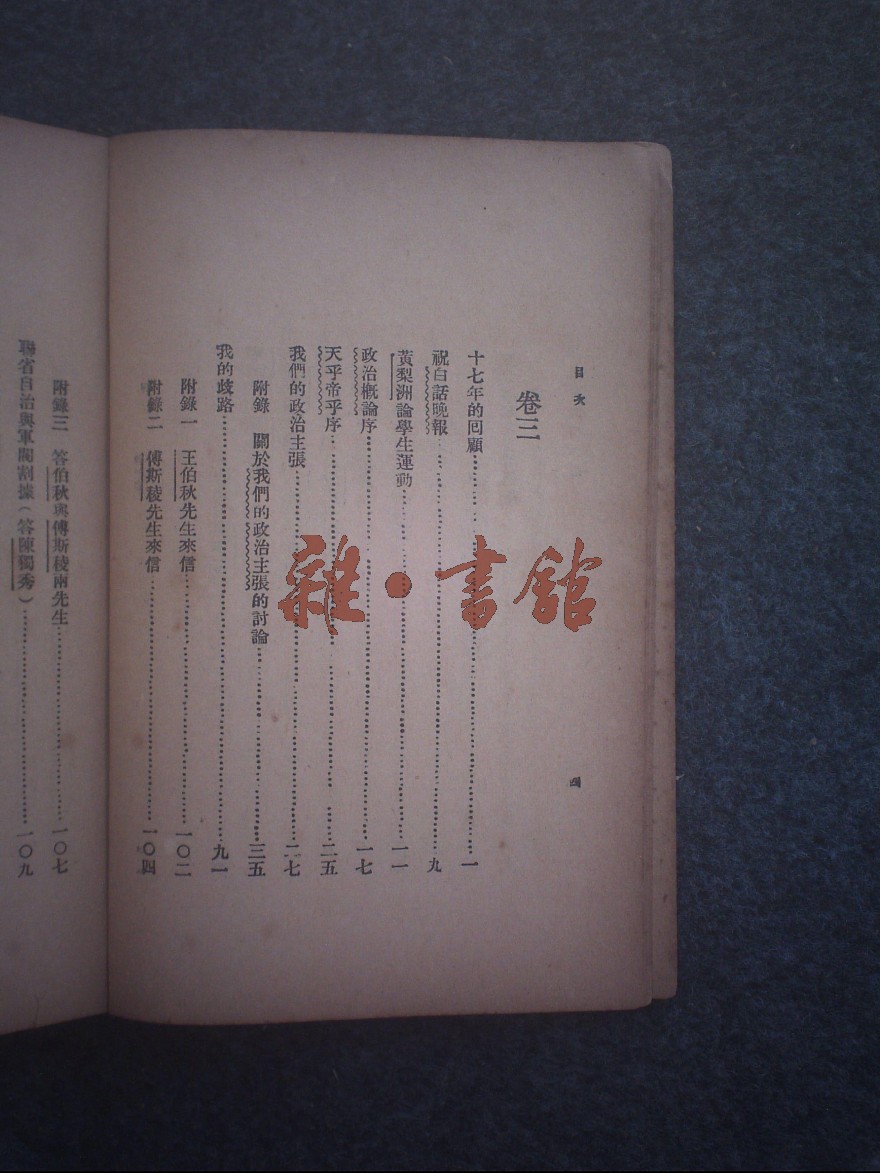 目次
四
卷三
十七年的回顧……一
祝白話晚報……九
黃梨洲論學生運動……一一
政治概論序……一七
天乎帝乎序……二五
我們的政治主張……二七
附錄 關於我們的政治主張的討論……三五
我的歧路……九一
附錄一 王伯秋先生來信……一〇二
附錄二 傅斯稜先生來信……一〇四
附錄三 答伯秋與傅斯稜兩先生……一〇七
聯省自治與軍閥割據(答陳獨秀)……一〇九
雜·書館